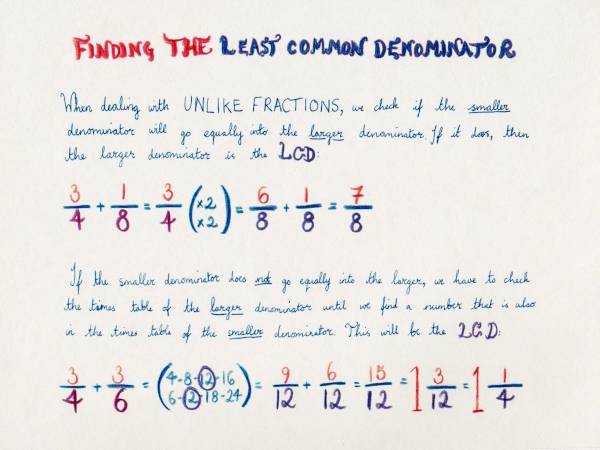 FINDING THE LEAST COMMON DENOMINATOR
When dealing with UNLIKE FRACTIONS, we check if the smaller
denominator will go equally into the larger denominator. If it does, then
the larger denominator is the LCD:
3/4 + 1/8 = 3/4 (×2 ×2) = 6/8 + 1/8 = 7/8
If the smaller denominator does not go equally into the larger, we have to check
the times table of the larger denominator until we find a number that is also
in the times table of the smaller denominator. This will be the LCD:
3/4 + 3/6 = (4-8-12-16 6-12-18-24) = 9/12 + 6/12 = 15/12 = 1 3/12 = 1 1/4